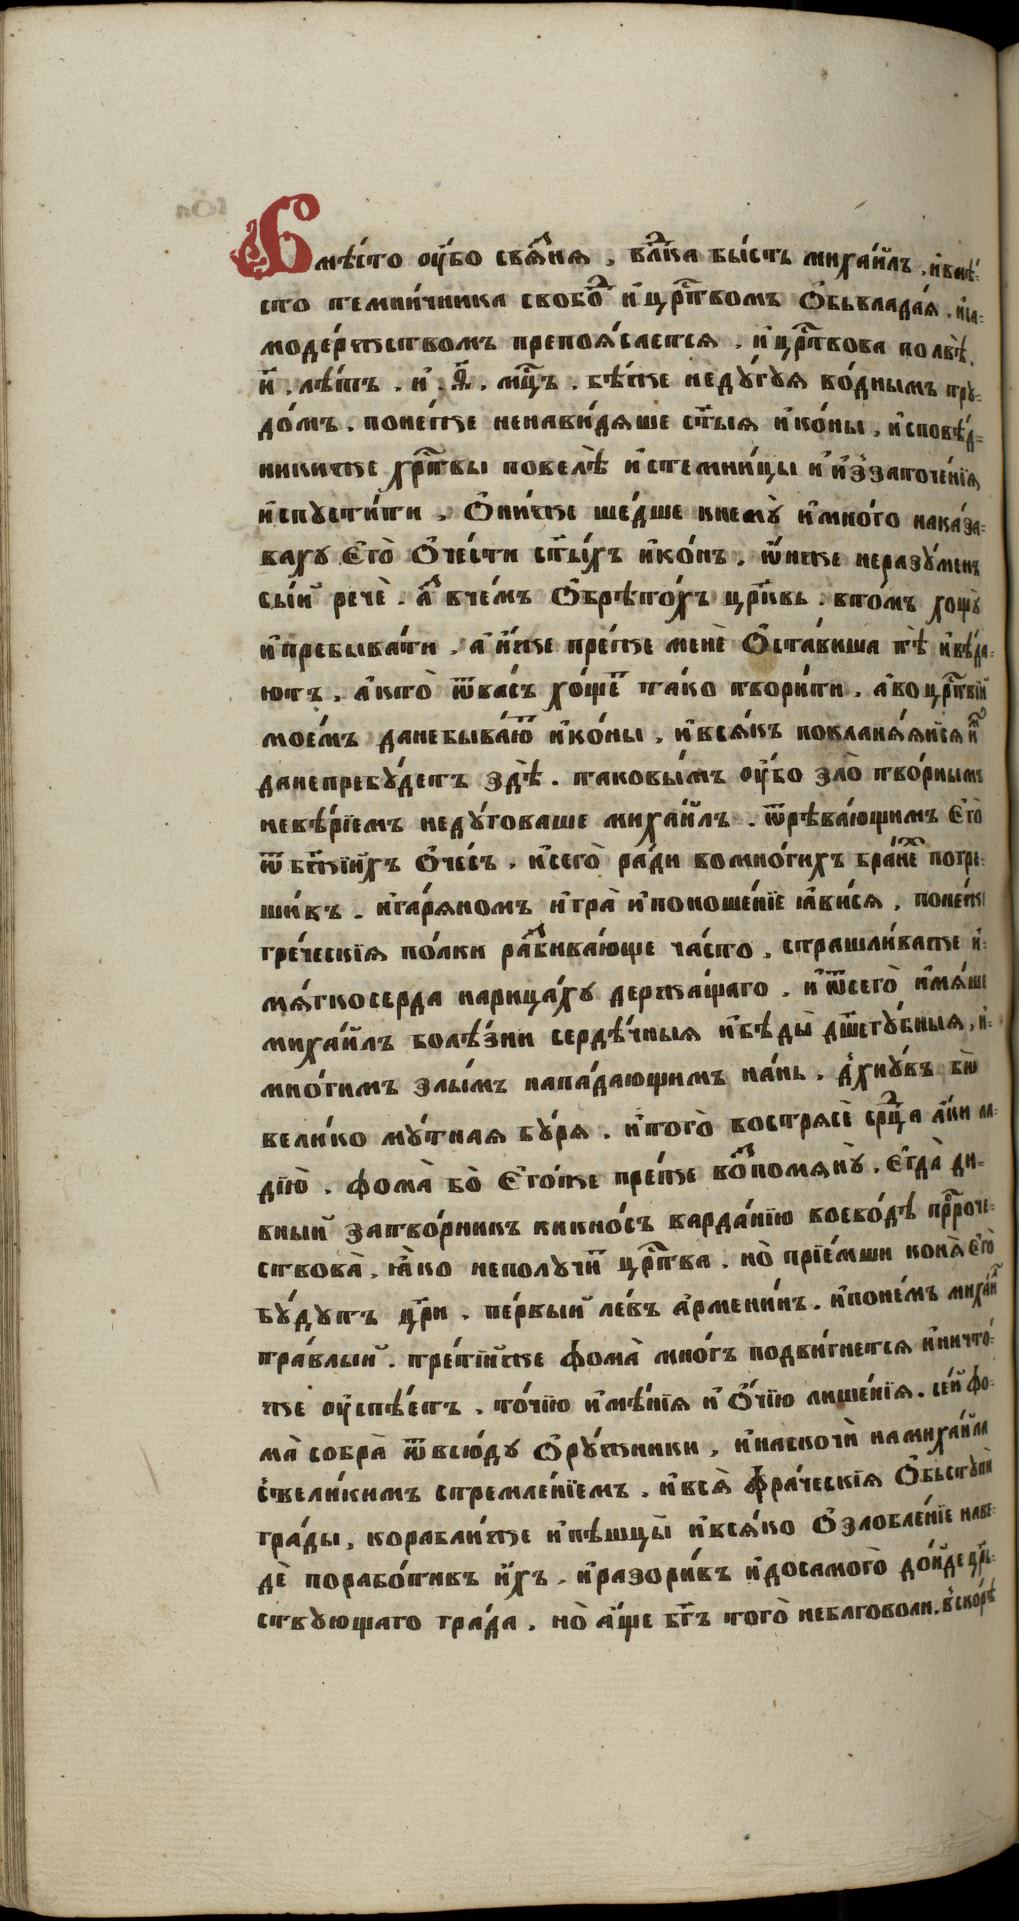 Вмѣ́сто ᲂу҆́бо свѧ́знѧ , влⷣка бы́сть михаи́лъ , и҆вмѣ́-
сто темни́чника свобо́ⷣ и҆ црⷭ҇твомъ Ѻ҆бьвлада́ѧ . и҆са-
моде́ржствомъ препоѧ́састсѧ . и҆ црⷭ҇твова по лвѣ̀ .
и҃ . лѣ́тъ . и҆ . ѳ҃ . мцⷭ҇ъ . бѣ́же неду́гуѧ во́днымъ тру-
до́мъ . поне́же ненави́дѧше ст҃ы́ѧ и҆ко́ны , и҆сповѣ́д-
никиже хрⷭ҇твы повелѣ̀ и҆стемни́цы и҆ и҆ззаточе́нїѧ
и҆спусти́ти . Ѻ҆ни́же ше́дше кнему̀ и҆мно́го наказа-
ваху Є҆го̀ Ѻ҆че́сти ст҃ы́хъ и҆ко́нъ . ѻ҆́нже неразу́менъ
сы́й рече̏ . а҆́зъ вче́мъ Ѻ҆брѣто́хъ цр҃ковь . вто́мъ хощу̀
и҆пребыва́ти . а҆ и҆́же пре́же мене̏ Ѻ҆ста́виша тѣ̀ и҆вѣ́да-
ютъ . а҆кто̀ ѿва́съ хо́щеⷮ та́ко твори́ти . а҆во црⷭ҇твїи
мое́мъ данебыва́юⷮ и҆ко́ны , и҆всѧ́къ покланѧ́ѧйсѧ и҆́мъ
данепребу́детъ здѣ̀ . таковы́мъ ᲂу҆́бо зло̀ тво́рнымъ
невѣ́рїемъ неду́говаше михаи́лъ . ѿрѣва́ющимъ Є҆го̀
ѿ бж҃їи́хъ Ѻ҆че́съ . и҆сего̀ ра́ди вомно́гихъ бра́неⷯ погрѣ-
ши́въ . и҆гарѧ́номъ и҆гра̀ и҆поноше́нїе ꙗ҆ви́сѧ , поне́же
гре́ческїѧ по́лки разбива́юще ча́сто , страшли́важе и҆-
мѧ́гкосерда нарица́ху держа́щаго . и҆ ѿсего̀ и҆мѧ́ше
михаи́лъ болѣ́зни серде́чныѧ и҆бѣды̀ дш҃егу́бныѧ , и҆-
мно́гимъ злы́мъ напа́дающимъ на́нь . дхну́въ бо̀
вели́ко му́тнаѧ бу́рѧ . и҆того̀ вострѧсѐ срⷣца а҆́ки ла-
дїю̀ . фома̀ бо̀ Є҆го́же пре́же во́зпомѧну̀ . Є҆гда̀ ди-
вный затво́рникъ кикно́съ варда́нїю воево́дѣ прⷪ҇роче-
ствова̀ . ꙗ҆́ко неполучи́ⷮ црⷭ҇тва . но̀ прїе́мши конѧ̀ Є҆го̀
бу́дутъ цр҃и . пе́рвый ле́въ а҆рмени́нъ . и҆поне́мъ михаи́лъ
тра́влый . тре́тїйже фома̀ мно́гъ подви́гнетсѧ и҆ничто́-
же ᲂу҆спѣ́етъ . то́чїю и҆мѣ́нїѧ и҆ Ѻ҆́чїю лише́нїѧ . се́й фо-
ма̀ собра̀ ѿвсю́ду Ѻ҆ру́жники , и҆наскочѝ на михаи́ла
свели́кимъ стремле́нїемъ . и҆всѧ̀ фра́ческїѧ Ѻ҆бьступѝ
гра́ды , корабли́же и҆пѣшцы̀ и҆всѧ́ко Ѻ҆злобле́нїе наве-
де̏ порабо́тивъ и҆́хъ . и҆разори́въ и҆досамого̀ до́йде цр҃ь-
ствующаго гра́да . но̀ а҆́ще бг҃ъ того̀ неблаговоли . вско́рѣ